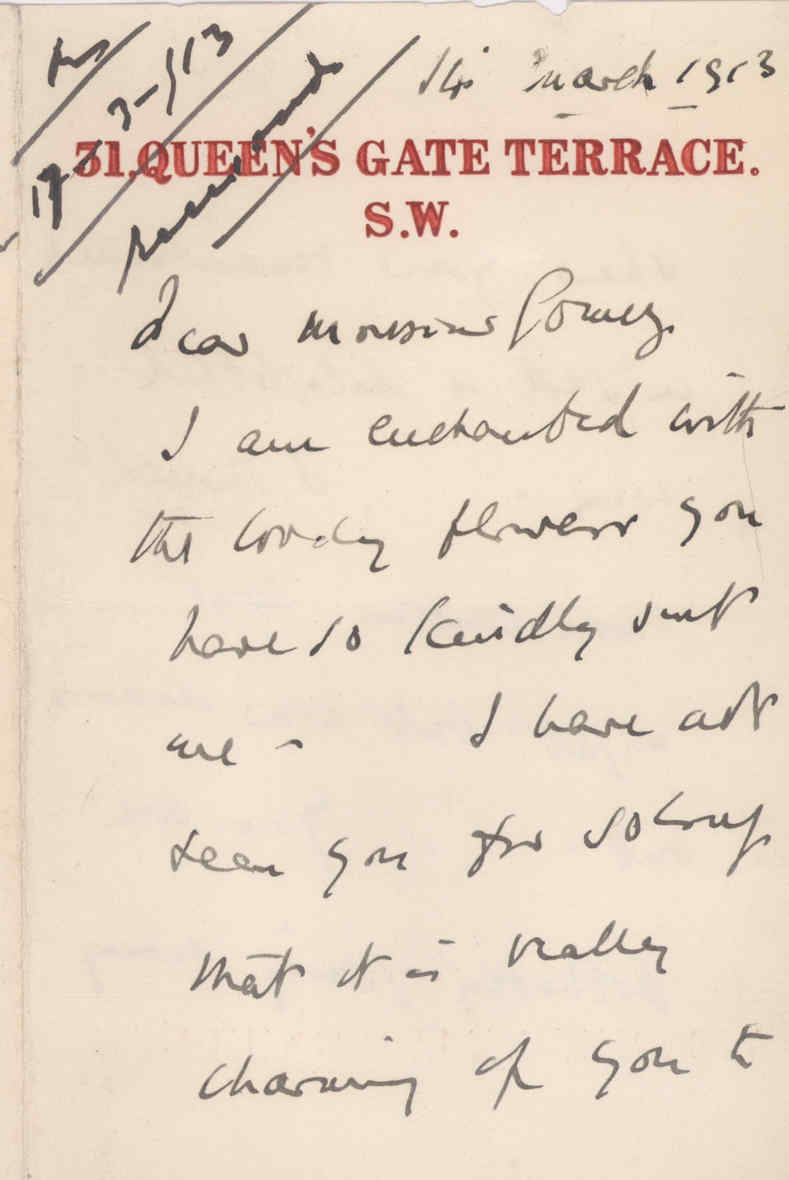 14 March 1913
17-3-913
31. QUEEN'S GATE TERRACE.
S.W.
Dear Monsieur
I am enchanted with
the lovely flowers you
have so kindly sent
me - I have not
seen you for so long
that it is really
charming of you to